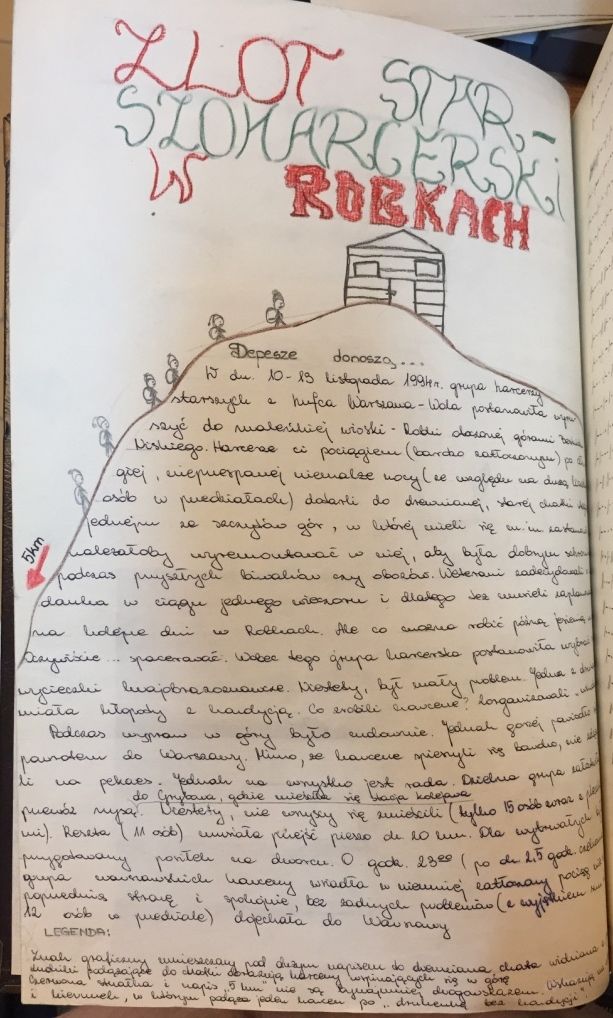 ZLOT STAR-
SZOHARCERSKI
W ROBKACH
Depesze donoszą...
W dn. 10-13 listopada 1994r. grupa harcerzy
starszych z hufca Warszawa-Wola postanowiła wyru-
szyć do maleńkiej wioski - Robki otoczonej górami Beskidu
Niskiego. Harcerze ci pociągiem (bardzo zatłoczonym) po
giej, nieprzespanej niemalże nocy (ze względu na dużą
osób w przedziałach) dotarli do drewnianej, starej chatki
jednym ze szczytów gór, w której mieli się m.in.
należałoby wyremontować w niej, aby była dobrym
podczas przyszłych biwaków czy obozów. Weterani zadecydowali
w ciągu jednego wieczoru i dlatego też musieli
na kolejne dni w Robkach. Ale co można robić późną jesienią
Oczywiście... spacerować. Wobec tego grupa harcerska postanowiła
wycieczki krajoznawcze. Niestety, był mały problem. Jedna z
miała kłopoty z kondycją. Co zrobili harcerze? Zorganizowali
Podczas wypraw w góry było cudownie. Jednak gorzej
powrotem do Warszawy. Mimo, że harcerze spieszyli się bardzo, nie
li na pekaes. Jednak na wszystko jest rada. Dzielna grupa
do Grybowa, gdzie mieściła się stacja kolejowa
przewóz nysą. Niestety, nie wszyscy się zmieścili (tylko 15 osób wraz z
mi). Reszta (11 osób) musiała przejść pieszo ok. 20 km. Dla wytrwałych
przygotowany posiłek na dworcu. O godz. 23⁰⁰ (po ok. 2,5 godz.
grupa warszawskich harcerzy wsiadła w niemniej zatłoczony pociąg
poprzednią stronę i spokojnie, bez żadnych problemów (z wyjątkiem
12 osób w przedziale) dojechała do Warszawy
LEGENDA:
Znak graficzny umieszczony pod dużym napisem to drewniana chata widziana
ludziki podążające do chatki obrazują harcerzy wspinających się w górę
Czerwona strzałka i napis „5 km" nie są bynajmniej drogowskazem. Wskazują
i kierunek, w którym podąża jeden harcerz po „ bez kondycji".
5km